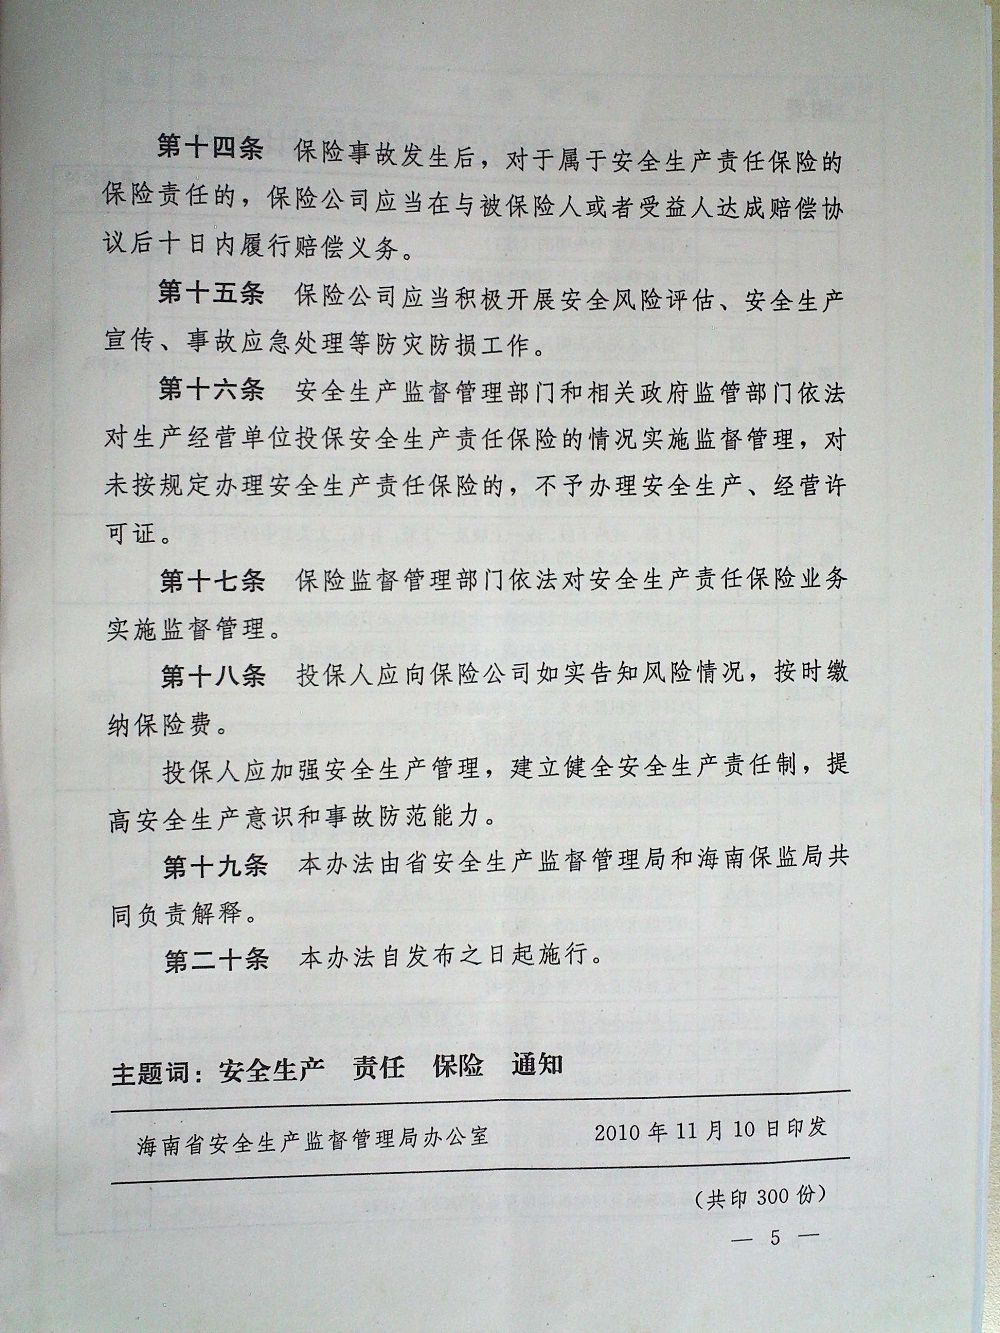 第十四条 保险事故发生后，对于属于安全生产责任保险的
保险责任的，保险公司应当在与被保险人或者受益人达成赔偿协
议后十日内履行赔偿义务。
第十五条 保险公司应当积极开展安全风险评估、安全生产
宣传、事故应急处理等防灾防损工作。
第十六条 安全生产监督管理部门和相关政府监管部门依法
对生产经营单位投保安全生产责任保险的情况实施监督管理，对
未按规定办理安全生产责任保险的，不予办理安全生产、经营许
可证。
第十七条 保险监督管理部门依法对安全生产责任保险业务
实施监督管理。
第十八条 投保人应向保险公司如实告知风险情况，按时缴
纳保险费。
投保人应加强安全生产管理，建立健全安全生产责任制，提
高安全生产意识和事故防范能力。
第十九条 本办法由省安全生产监督管理局和海南保监局共
同负责解释。
第二十条 本办法自发布之日起施行。
主题词：安全生产 责任 保险 通知
海南省安全生产监督管理局办公室 2010年11月10日印发
（共印300份）
— 5 —